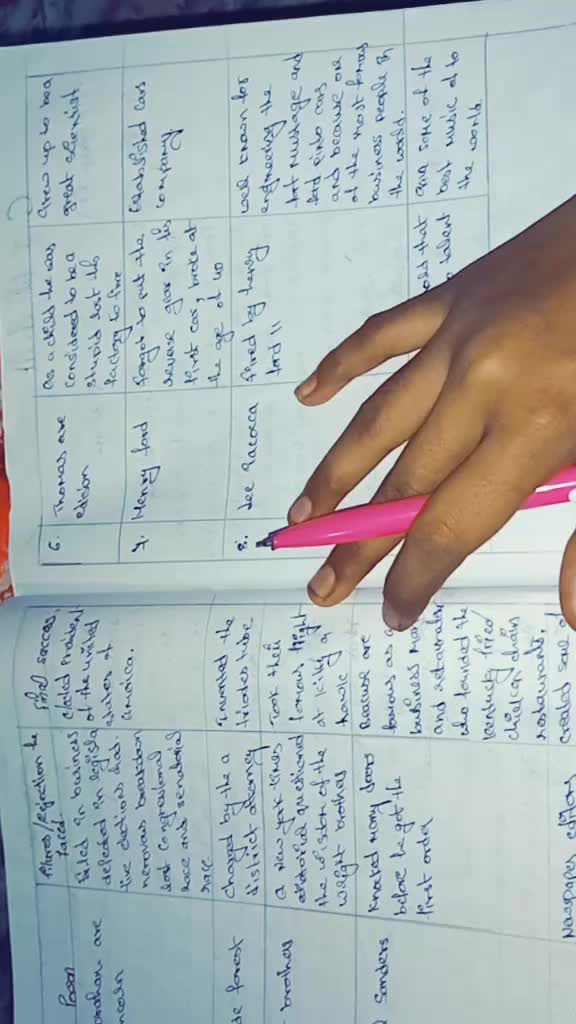 Person
Failures/Rejection he
faced.
Final success.
Abraham are
Lincoln
failed in business
defeated in legisla
tive elections had.
nervous breakdown
lost congressional
race and senatorial
race
elected President
of the united
states of
America.
de forest
charged by the a
district attorney
Invented the
triodes tube
brothers
A New York times
editorial questioned
the wisdom of the
wright brothers
Took their
famous flight
at kitty a
hawk
Sanders
Knocked many doors
before he got the
first order
Became are
famous as a
business man
and restaurator
who founded the
Kentucky fried
chicken chain
restaurants.
Newspaper editors
created some of
6. Thomas are
edison
As a child he was
considered to be a
stupid lost his
factory to fire
Grew up to be a
great scientist
7. Henry ford
forgot to put the
reverse gear in his
first car, broke at
the age of 40
Established cars
company
8. Lee Iacocca
fired by henry
ford II
well known for
engineering the
ford mustage and
ford pinto cars
and because one
of the most famous
business people in
the world.
told that
no talent
give some of the
best music of to
the world.